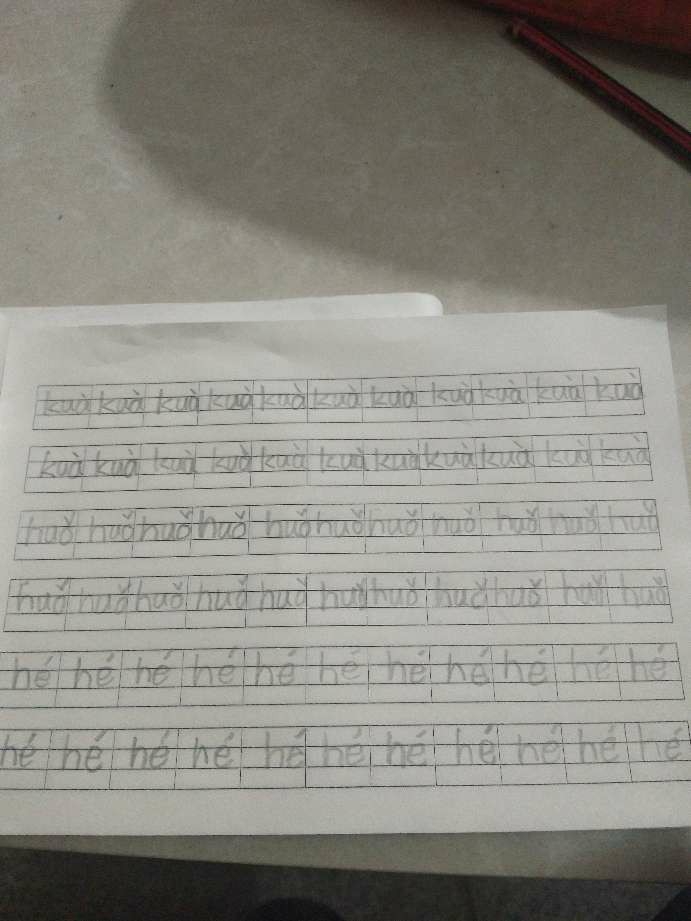 kuà kuà kuà kuà kuà kuà kuà kuà kuà kuà kuà
kuà kuà kuà kuà kuà kuà kuà kuà kuà kuà kuà
huǒ huǒ huǒ huǒ huǒ huǒ huǒ huǒ huǒ huǒ huǒ
huǒ huǒ huǒ huǒ huǒ huǒ huǒ huǒ huǒ huǒ huǒ
hé hé hé hé hé hé hé hé hé hé hé
hé hé hé hé hé hé hé hé hé hé hé